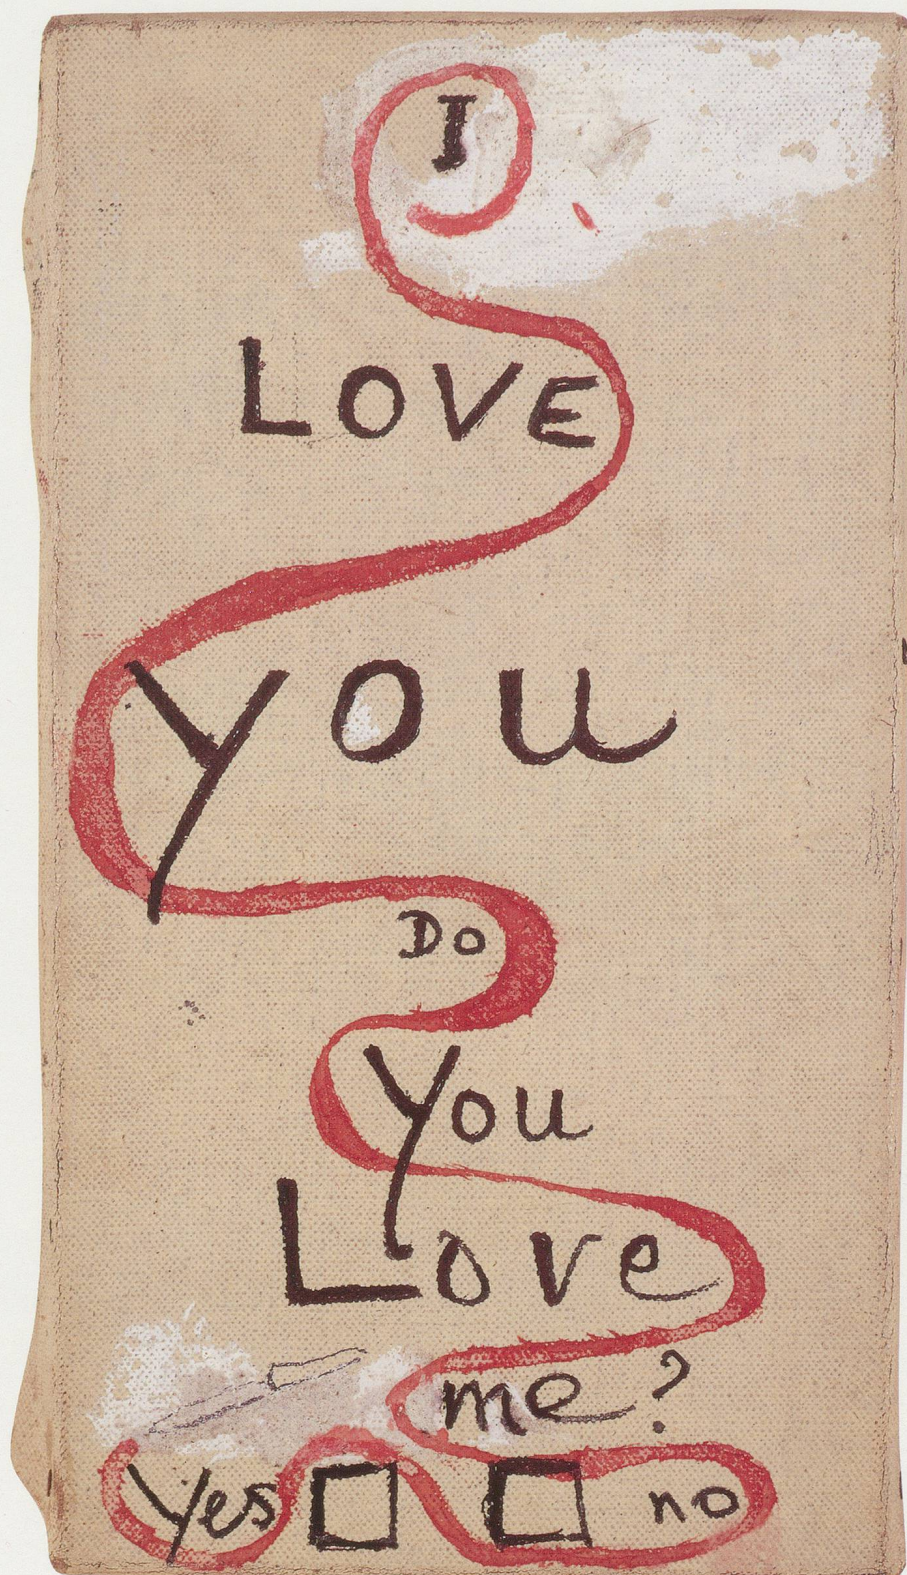 I
LOVE
you
Do
you
Love
me?
yes □ □ no